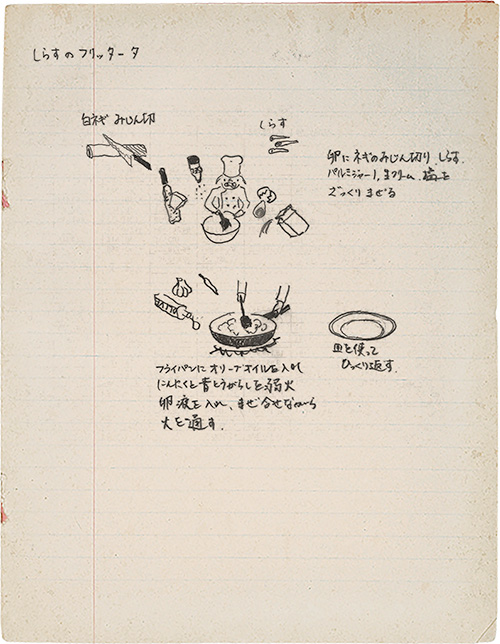 しらすのフリッタータ
白ネギ みじん切
しらす
卵にネギのみじん切り しらす
パルミジャーノ,生クリーム、塩を
ざっくりまぜる
フライパンに オリーブオイルを入れ
にんにくと唐とうがらしを弱火
卵液を入れ、まぜ合せながら
火を通す.
皿を使って
ひっくり返す.